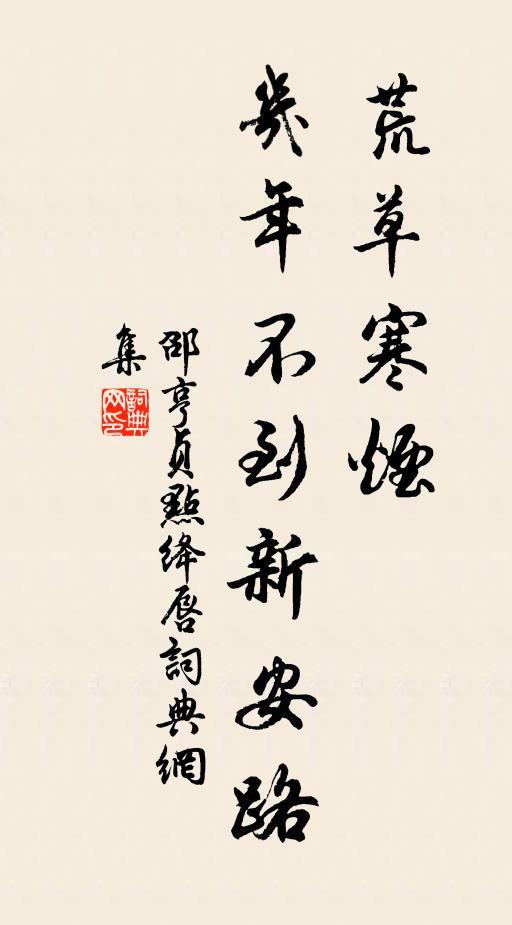 荒草寒煙
幾年不到新安路
邵亨貞點絳唇詞典網
集
詞典
网印